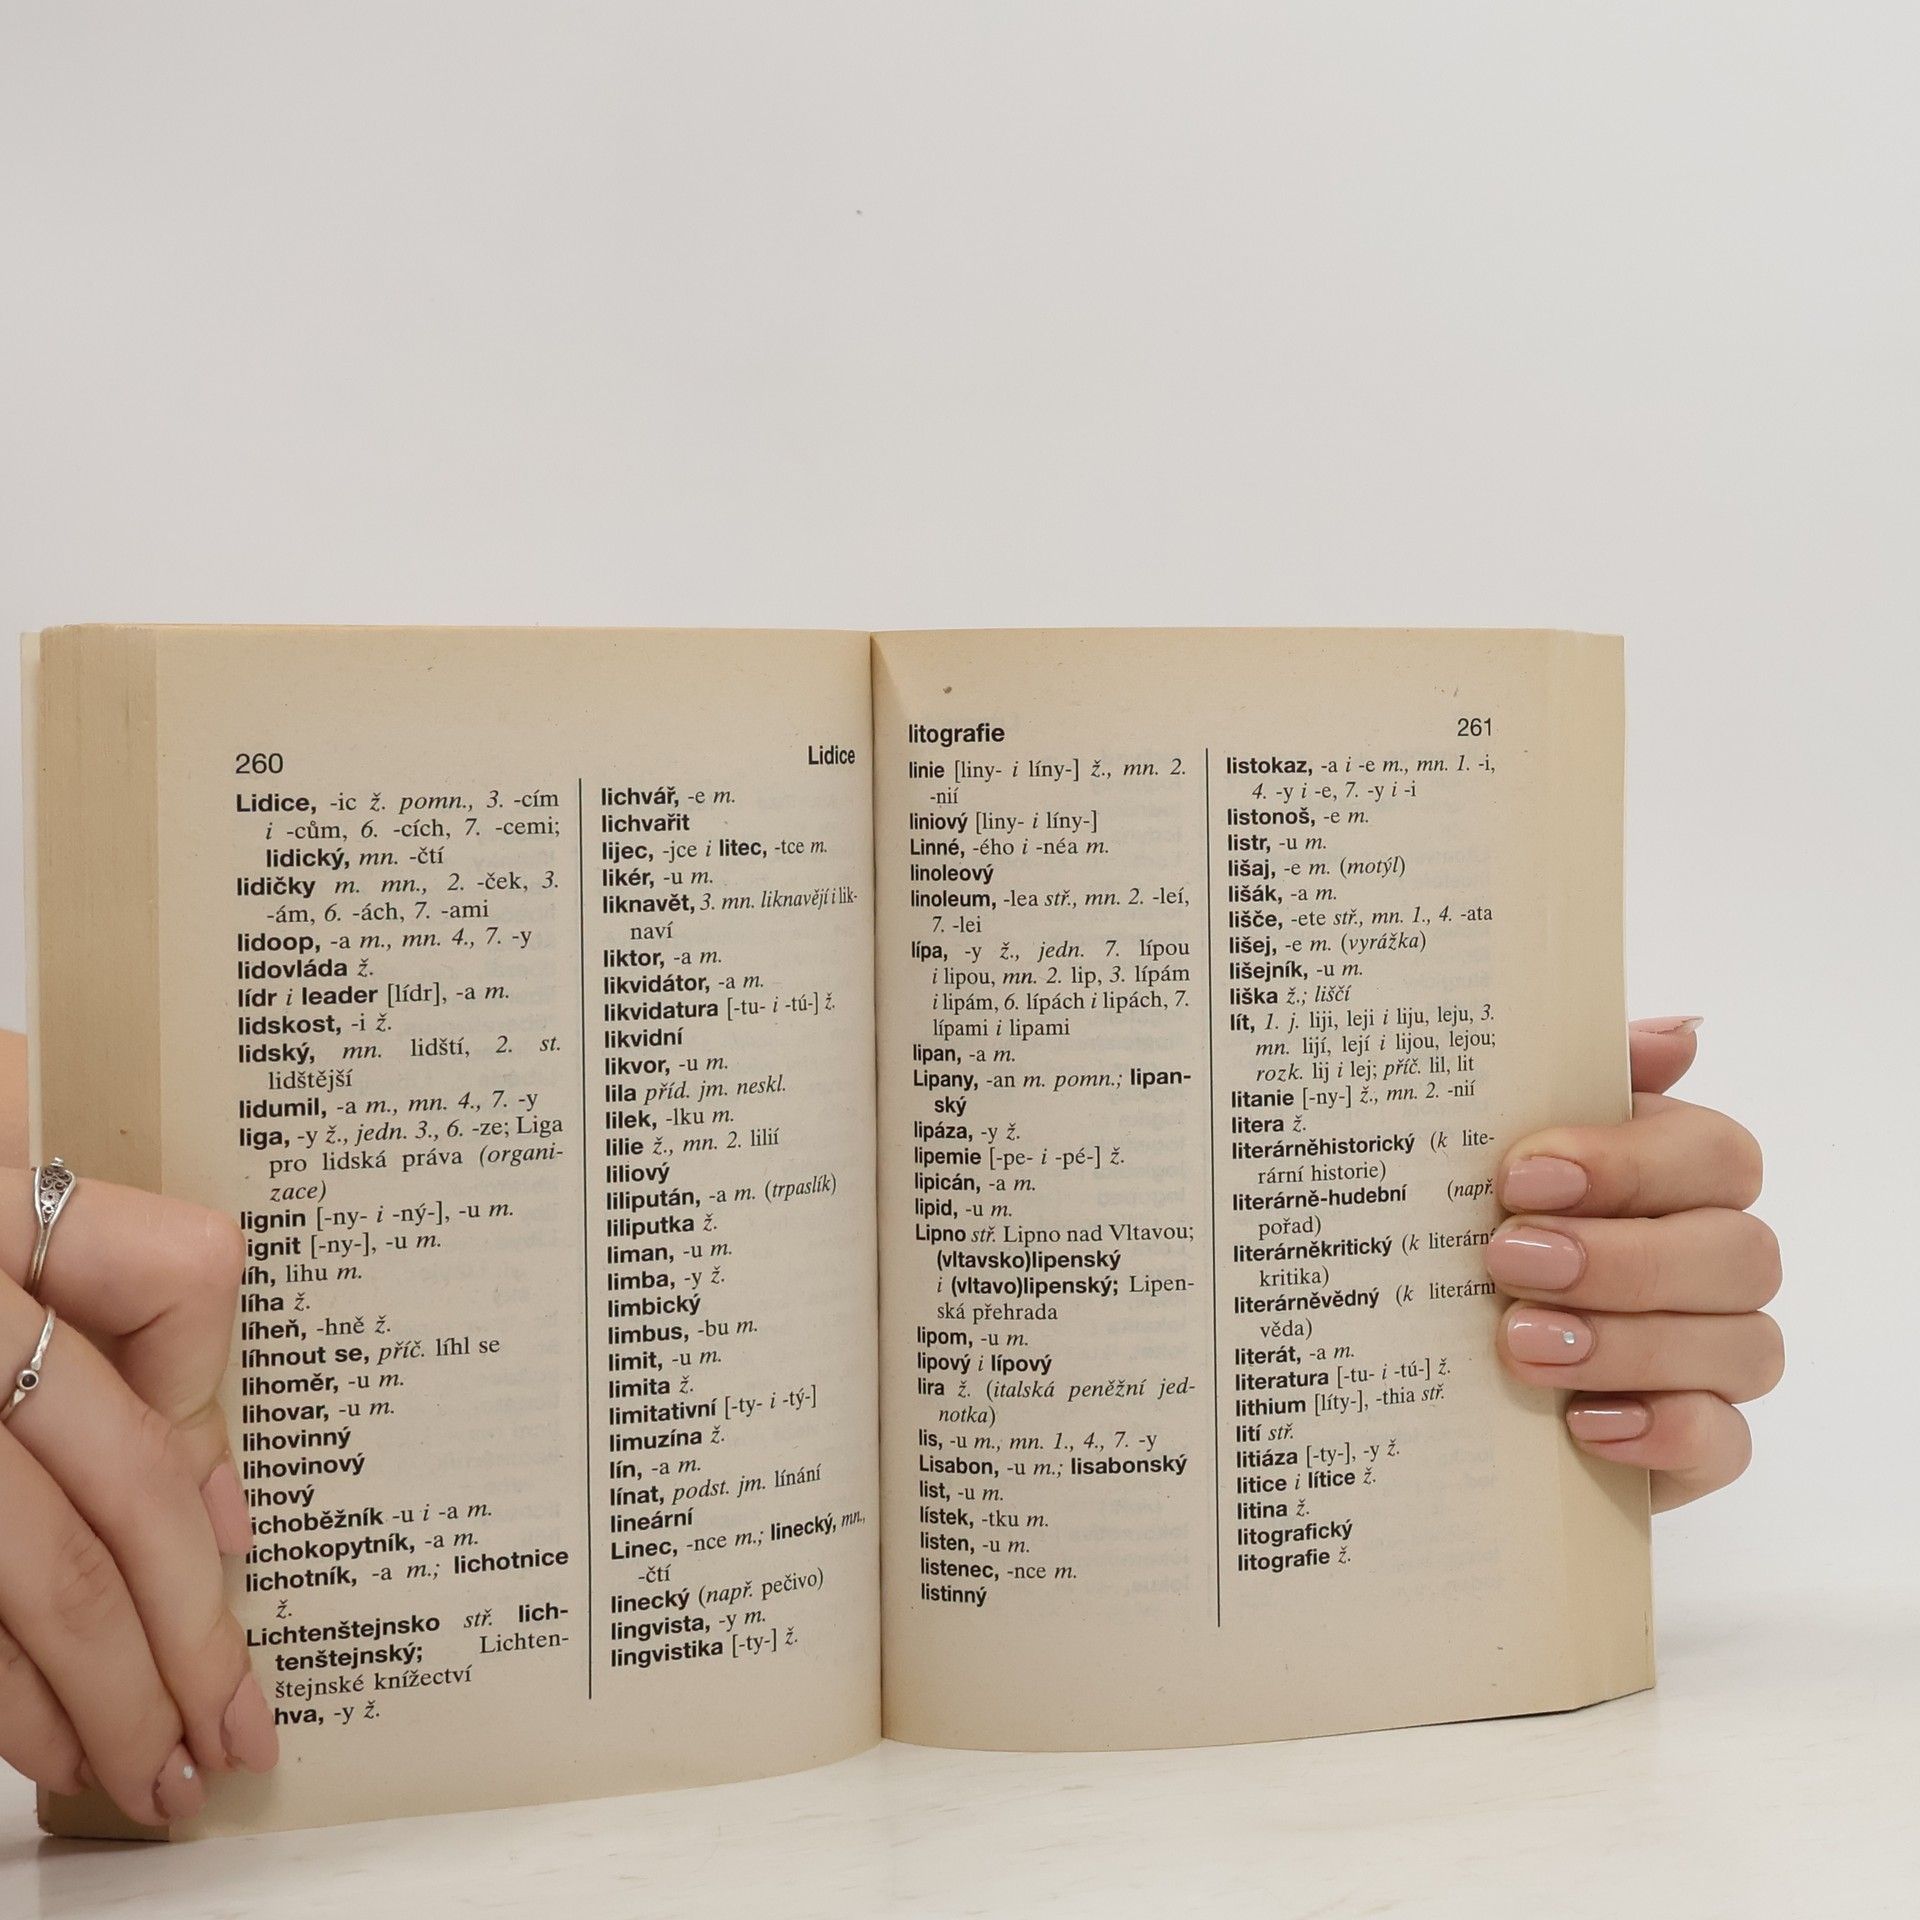 260
Lidice
Lidice, -ic ž. pomn., 3. -cím
i -cům, 6. -cích, 7. -cemi;
lidický, mn. -čtí
lidičky m. mn., 2. -ček, 3.
-ám, 6. -ách, 7. -ami
lidoop, -a m., mn. 4., 7. -y
lidovláda ž.
lídr i leader [lídr], -a m.
lidskost, -i ž.
lidský, mn. lidští, 2. st.
lidštější
lidumil, -a m., mn. 4., 7. -y
liga, -y ž., jedn. 3., 6. -ze; Liga
pro lidská práva (organi-
zace)
lignin [-ny- i -ný-], -u m.
ignit [-ny-], -u m.
líh, lihu m.
líha ž.
líheň, -hně ž.
líhnout se, příč. líhl se
lihoměr, -u m.
lihovar, -u m.
lihovinný
lihovinový
lihový
ichoběžník -u i -a m.
lichokopytník, -a m.
lichotník, -a m.; lichotnice
ž.
Lichtenštejnsko stř. lich-
tenštejnský; Lichten-
štejnské knížectví
hva, -y ž.
lichvář, -e m.
lichvařit
lijec, -jce i litec, -tce m.
likér, -u m.
liknavět, 3. mn. liknavějí i lik-
naví
liktor, -a m.
likvidátor, -a m.
likvidatura [-tu- i -tú-] ž.
likvidní
likvor, -u m.
lila příd. jm. neskl.
lilek, -lku m.
lilie ž., mn. 2. lilií
liliový
lilipután, -a m. (trpaslík)
liliputka ž.
liman, -u m.
limba, -y ž.
limbický
limbus, -bu m.
limit, -u m.
limita ž.
limitativní [-ty- i -tý-]
limuzína ž.
lín, -a m.
línat, podst. jm. línání
lineární
Linec, -nce m.; linecký, mn.,
-čtí
linecký (např. pečivo)
lingvista, -y m.
lingvistika [-ty-] ž.
litografie
261
linie [liny- i líny-] ž., mn. 2.
-nií
liniový [liny- i líny-]
Linné, -ého i -néa m.
linoleový
linoleum, -lea stř., mn. 2. -leí,
7. -lei
lípa, -y ž., jedn. 7. lípou
i lipou, mn. 2. lip, 3. lípám
i lipám, 6. lípách i lipách, 7.
lípami i lipami
lipan, -a m.
Lipany, -an m. pomn.; lipan-
ský
lipáza, -y ž.
lipemie [-pe- i -pé-] ž.
lipicán, -a m.
lipid, -u m.
Lipno stř. Lipno nad Vltavou;
(vltavsko)lipenský
i (vltavo)lipenský; Lipen-
ská přehrada
lipom, -u m.
lipový i lípový
lira ž. (italská peněžní jed-
notka)
lis, -u m., mn. 1., 4., 7. -y
Lisabon, -u m.; lisabonský
list, -u m.
lístek, -tku m.
listen, -u m.
listenec, -nce m.
listinný
listokaz, -a i -e m., mn. 1. -i,
4. -y i -e, 7. -y i -i
listonoš, -e m.
listr, -u m.
lišaj, -e m. (motýl)
lišák, -a m.
lišče, -ete stř., mn. 1., 4. -ata
lišej, -e m. (vyrážka)
lišejník, -u m.
liška ž.; liščí
lít, 1. j. liji, leji i liju, leju, 3.
mn. lijí, lejí i lijou, lejou;
rozk. lij i lej; příč. lil, lit
litanie [-ny-] ž., mn. 2. -nií
litera ž.
literárněhistorický (k lite-
rární historie)
literárně-hudební (např.
pořad)
literárněkritický (k literární
kritika)
literárněvědný (k literární
věda)
literát, -a m.
literatura [-tu- i -tú-] ž.
lithium [líty-], -thia stř.
lití stř.
litiáza [-ty-], -y ž.
litice i lítice ž.
litina ž.
litografický
litografie ž.